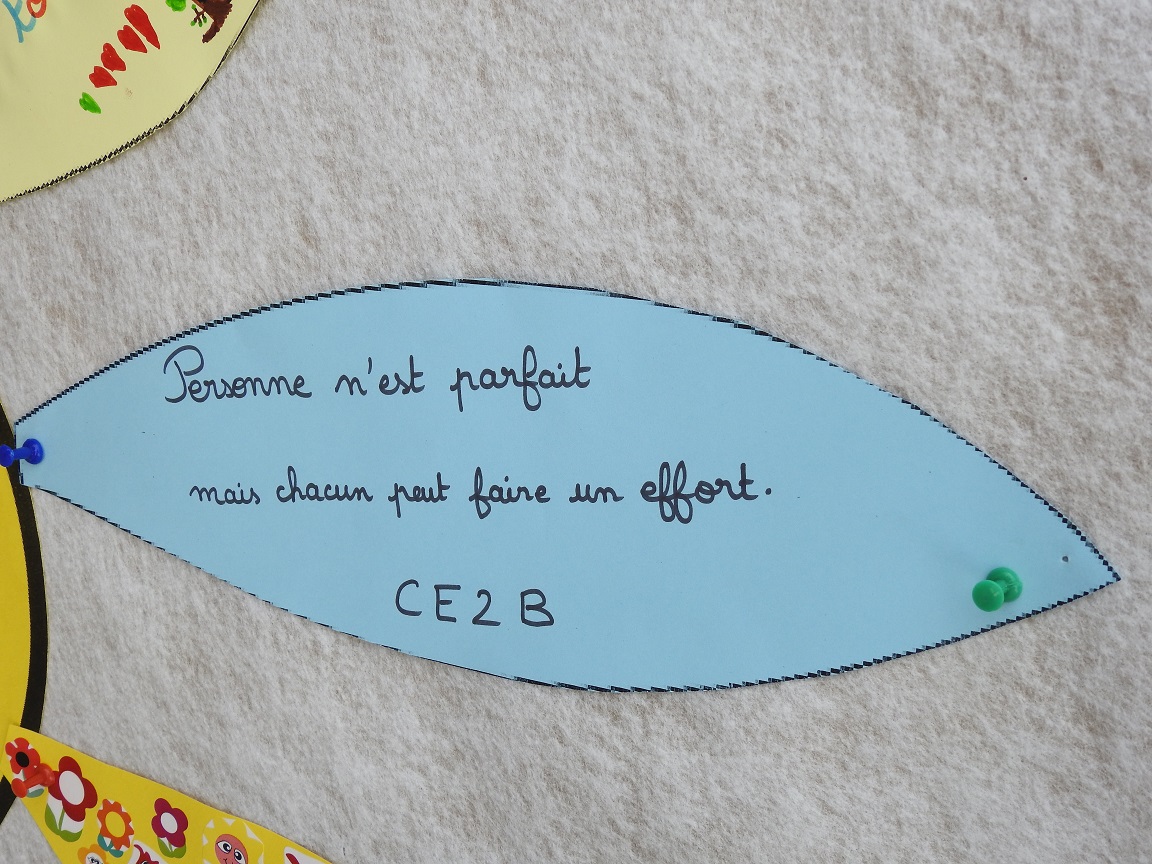 Personne n'est parfait
mais chacun peut faire un effort.
CE2 B